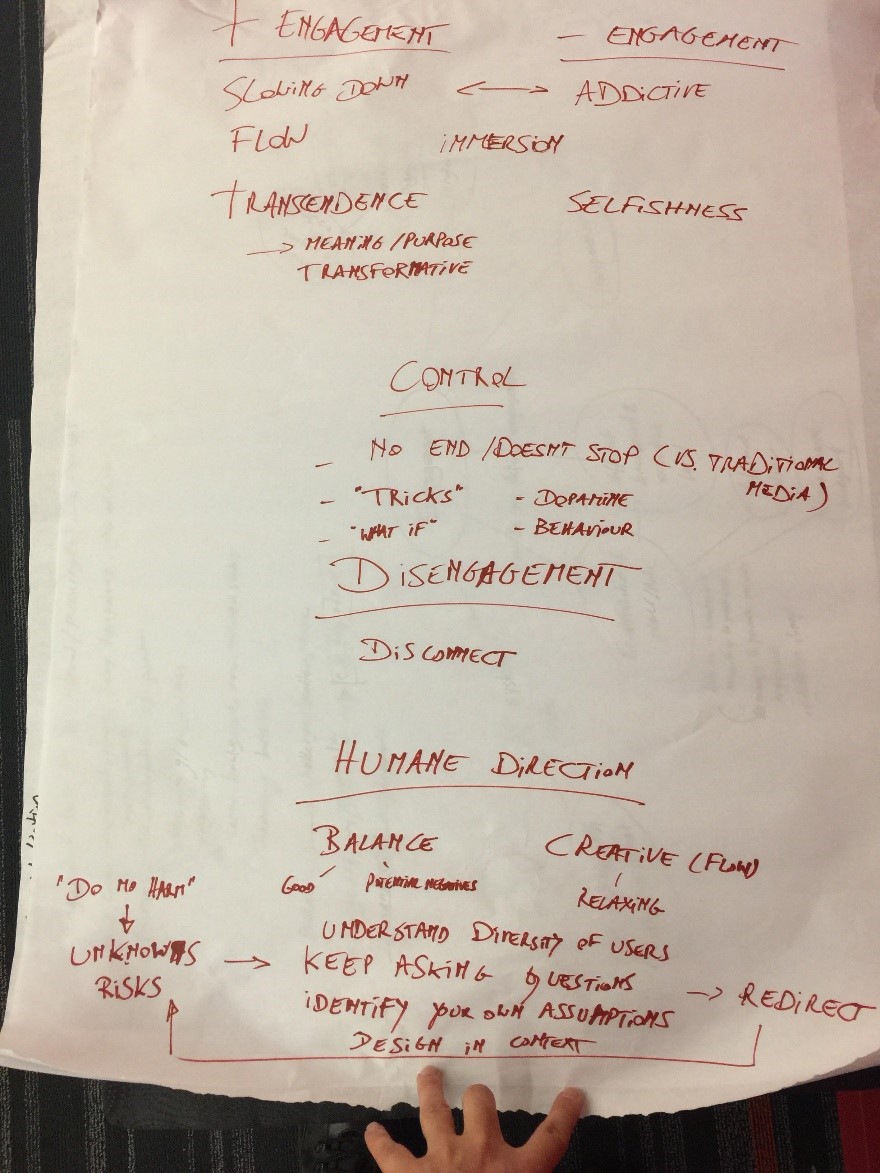 + ENGAGEMENT — ENGAGEMENT
SLOWING DOWN ⟷ ADDICTIVE
FLOW IMMERSION
TRANSCENDENCE SELFISHNESS
→ MEANING/PURPOSE
TRANSFORMATIVE
CONTROL
– NO END/DOESNT STOP (VS. TRADITIONAL
MEDIA)
– "TRICKS" - DOPAMINE
– "WHAT IF" - BEHAVIOUR
DISENGAGEMENT
DISCONNECT
HUMANE DIRECTION
BALANCE CREATIVE (FLOW)
GOOD POTENTIAL NEGATIVES
RELAXING
"DO NO HARM"
↓
UNKNOWNS
RISKS
→
UNDERSTAND DIVERSITY OF USERS
KEEP ASKING QUESTIONS
IDENTIFY YOUR OWN ASSUMPTIONS
DESIGN IN CONTEXT
→ REDIRECT